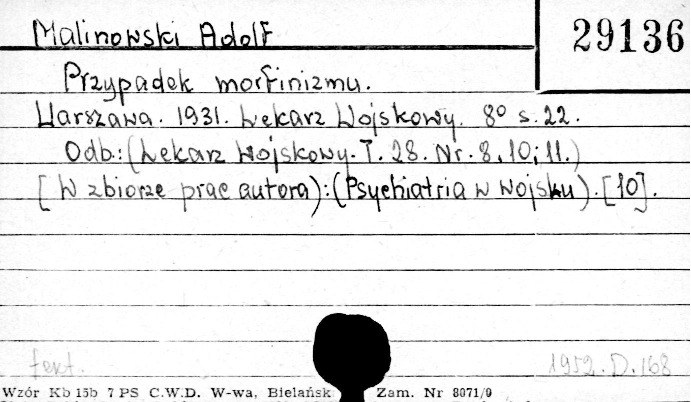 Malinowski Adolf
29136
Przypadek morfinizmu.
Warszawa. 1931. Lekarz Wojskowy. 8° s. 22.
Odb.: (Lekarz Wojskowy. T. 28. Nr. 8, 10; 11.)
[W zbiorze prac autora): (Psychiatria w wojsku). [10].
fekt.
1952. D. 168
Wzór Kb 15b 7 PS C.W.D. W-wa, Bielańsk Zam. Nr 8071/9